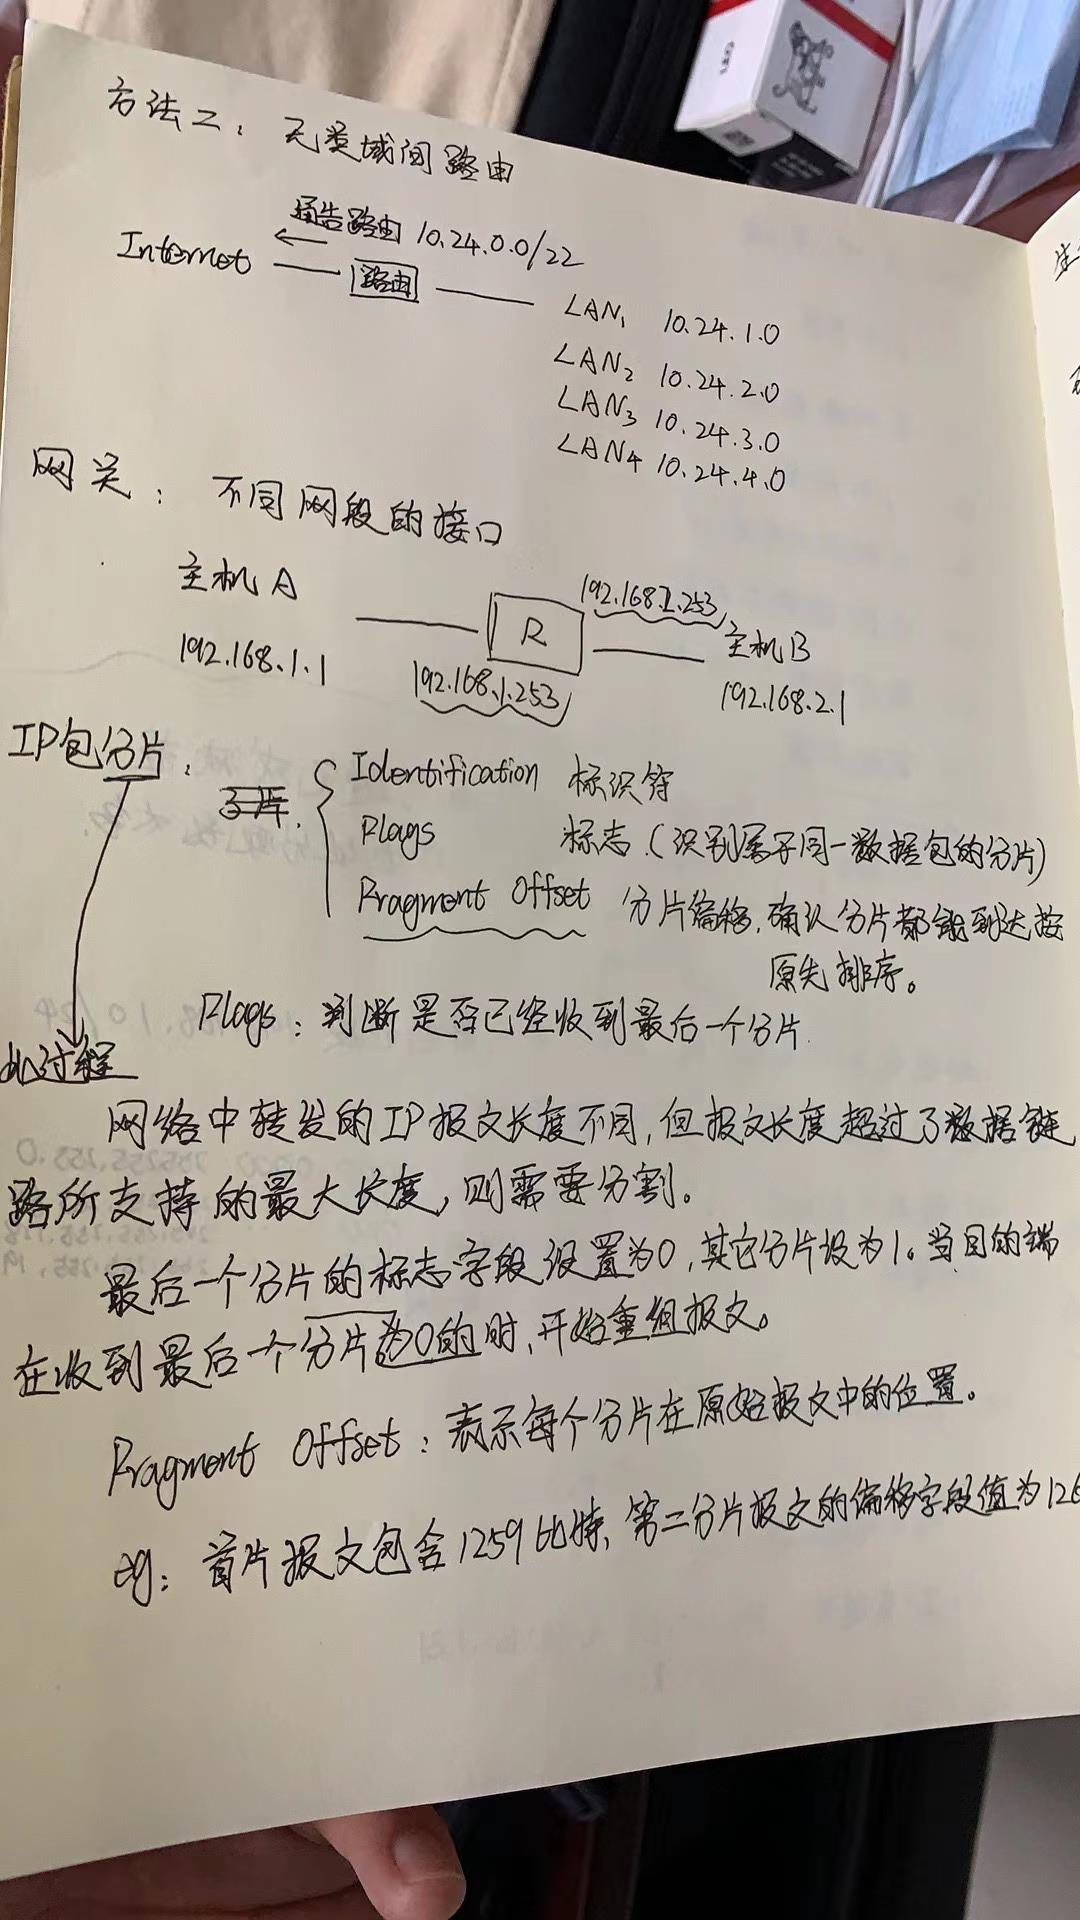 方法二：无类域间路由
通告路由 10.24.0.0/22
Internet 路由 LAN₁ 10.24.1.0
LAN₂ 10.24.2.0
LAN₃ 10.24.3.0
LAN₄ 10.24.4.0
网关：不同网段的接口
主机A
192.168.2.253
R 主机B
192.168.1.1 192.168.1.253 192.168.2.1
IP包分片：
Identification 标识符
Flags 标志（识别属于同一数据包的分片）
Fragment Offset 分片偏移，确认分片都能到达按
原先排序。
Flags：判断是否已经收到最后一个分片
此过程
网络中转发的IP报文长度不同，但报文长度超过了数据链
路所支持的最大长度，则需要分割。
最后一个分片的标志字段设置为0，其它分片设为1。当目的端
在收到最后一个分片为0的时，开始重组报文。
Fragment Offset：表示每个分片在原始报文中的位置。
eg：首片报文包含1259比特，第二分片报文的偏移字段值为126